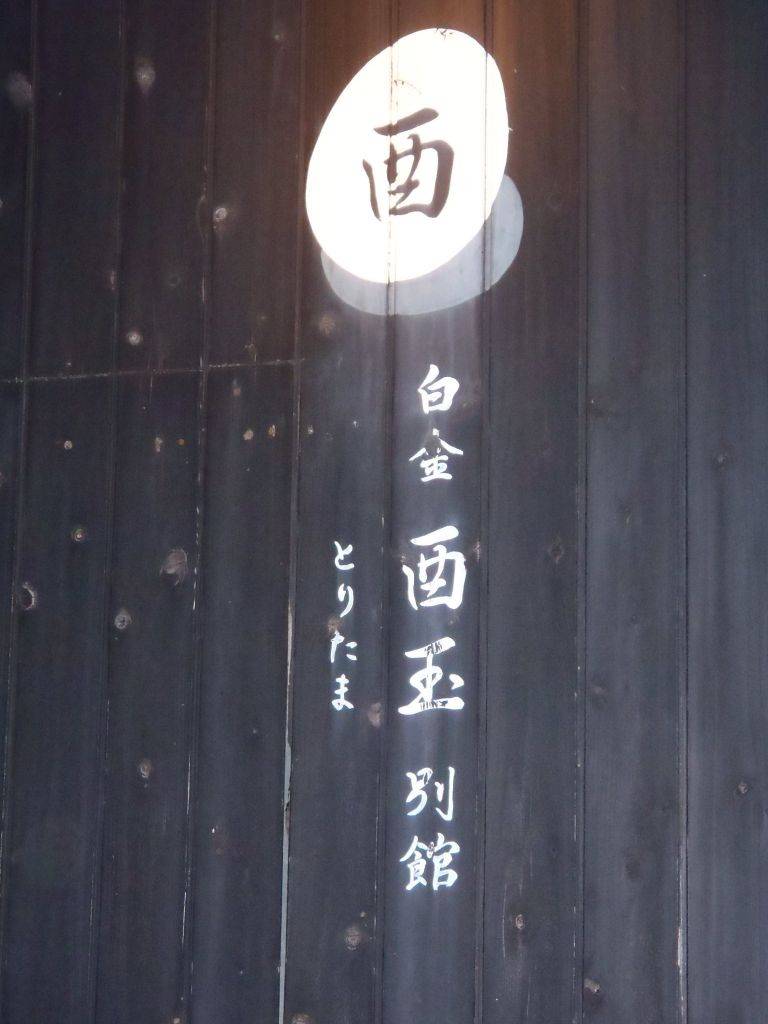 酉
白金 酉玉 別館
とりたま